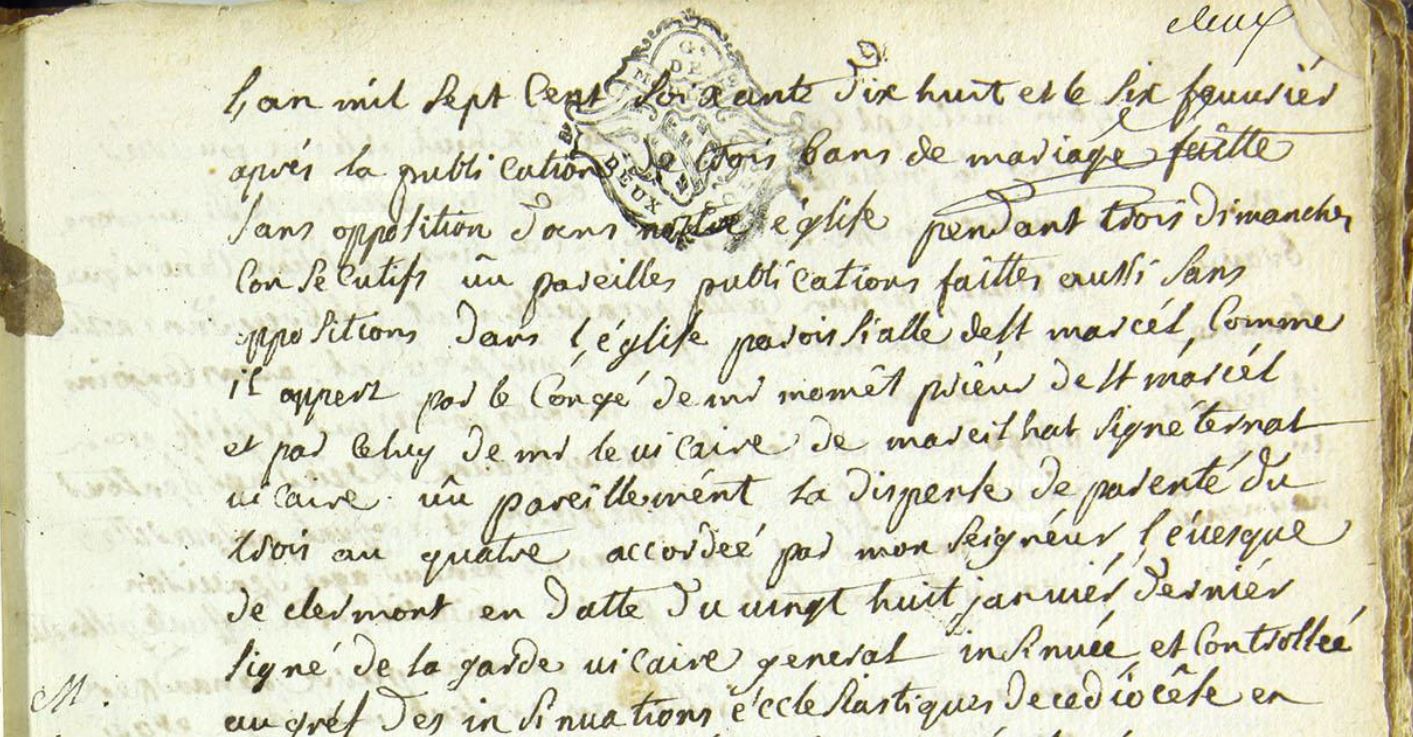 deux
L'an mil sept cent soixante dix huit et le six feuurier
après la publication de trois bans de mariage faitte
sans opposition dans notre église pendant trois dimanches
consecutifs vû pareilles publications faittes aussi sans
oppositions dans l'église paroissialle de st marcél, comme
il appert par le congé de mr momêt priéur de st marcél
et par celuy de mr le vicaire de mareilhat signé ternat
vicaire. vû pareillemént la dispense de parenté du
trois au quatre accordeé par mon seignéur l'évesque
de clermont en datte du vingt huit januiér derniér
signé de la garde vicaire general insinuée et controlleé
au gréf des insinuations écclesiastiques de ce diocêse en
M.
G. DE
DEUX